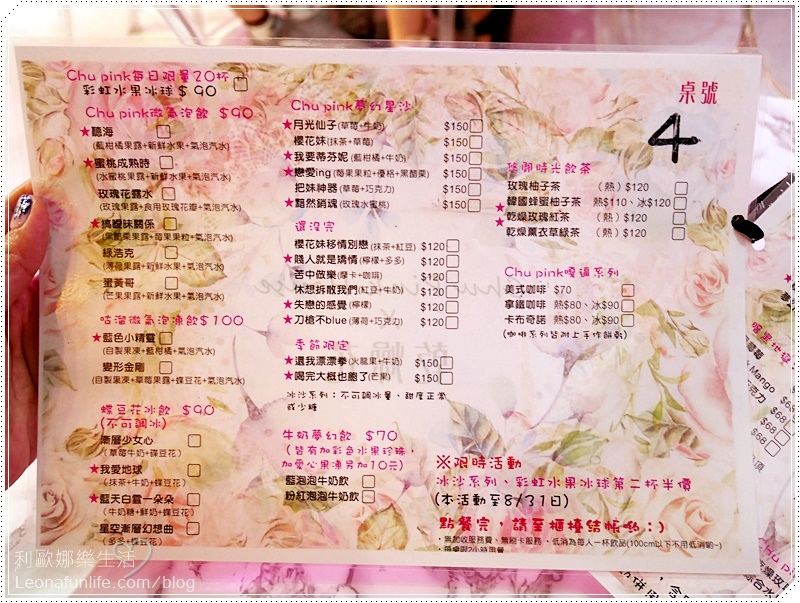 Chu pink每日限量20杯
彩虹水果冰球$90
Chu pink微氣泡飲 $90
★聽海
(藍柑橘果露+新鮮水果+氣泡汽水)
★蜜桃成熟時
(水蜜桃果露+新鮮水果+氣泡汽水)
玫瑰花露水
(玫瑰果露+食用玫瑰花瓣+氣泡汽水)
★搞曖昧關係
(黑醋栗果露+莓果果粒+氣泡汽水)
綠浩克
(薄荷果露+新鮮水果+氣泡汽水)
蛋黃哥
(芒果果露+新鮮水果+氣泡汽水)
咕溜微氣泡凍飲$100
★藍色小精靈
(自製果凍+藍柑橘+氣泡汽水)
變形金剛
(自製果凍+草莓果露+蝶豆花+氣泡汽水)
蝶豆花冰飲 $90
(不可調冰)
漸層少女心
(草莓牛奶+蝶豆花)
★我愛地球
(抹茶+牛奶+蝶豆花)
★藍天白雲一朵朵
(牛奶糖+鮮奶+蝶豆花)
星空漸層幻想曲
(多多+蝶豆花)
Chu pink夢幻星沙
★月光仙子(草莓+牛奶) $150
櫻花妹(抹茶+草莓) $150
★我要蒂芬妮(藍柑橘+牛奶) $150
★戀愛ing(莓果果粒+優格+黑醋栗) $150
把妹神器(草莓+巧克力) $150
★黯然銷魂(玫瑰水蜜桃) $150
還沒完
櫻花妹移情別戀(抹茶+紅豆) $120
★賤人就是矯情(檸檬+多多) $120
苦中做樂(摩卡+咖啡) $120
休想拆散我們(紅豆+牛奶) $120
★失戀的感覺(檸檬) $120
★刀槍不blue(薄荷+巧克力) $120
季節限定
★還我漂漂拳(火龍果+牛奶) $150
★喝完大概也飽了(芒果) $150
冰沙系列:不可調冰量、甜度正常
或少糖
牛奶夢幻飲 $70
(皆有加彩色水果珍珠,
加愛心果凍另加10元)
藍泡泡牛奶飲
粉紅泡泡牛奶飲
桌號
4
悠閒時光飲茶
玫瑰柚子茶 (熱)$120
★韓國蜂蜜柚子茶 熱$110、冰$120
★乾燥玫瑰紅茶 (熱)$120
乾燥薰衣草綠茶 (熱)$120
Chu pink嘎逼系列
美式咖啡 $70
拿鐵咖啡 熱$80、冰$90
卡布奇諾 熱$80、冰$90
(咖啡系列皆附上手作餅乾)
※限時活動
冰沙系列、彩虹水果冰球第二杯半價
(本活動至8/31日)
點餐完,請至櫃檯結帳喲:)
·無加收服務費、無刷卡服務,低消為每人一杯飲品(100cm以下不用低消喲~)
·每桌限2小時用餐
Mango
巧克力
$68
$68
$68
Chu pink
利歐娜樂生活
Leonafunlife.com/blog